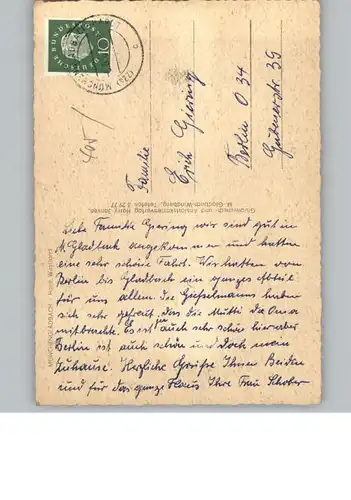 DEUTSCHE BUNDESPOST
10
(22a) MÜNCHEN
Familie
Erich Giering
Berlin O 34
Gubenerstr 39
Grußversand- und Ansichtskartenverlag Harry Janssen,
M.-Gladbach-Windberg, Telefon 3 29 77
MÖNCHENGLADBACH Haus Windberg
Liebe Familie Giering wir sind gut in
M. Gladbach angekommen und hatten
eine sehr schöne Fahrt. Wir hatten von
Berlin bis Gladbach ein ganzes Abteil
für uns allein. Die haben
sich sehr gefreut das die Mutti da Oma
mitbrachte. Es ist auch sehr schön hier aber
Berlin ist auch schön und doch mein
Zuhause. Herzliche Grüsse Ihnen Beiden
und für das ganze Haus Ihre Frau Schober